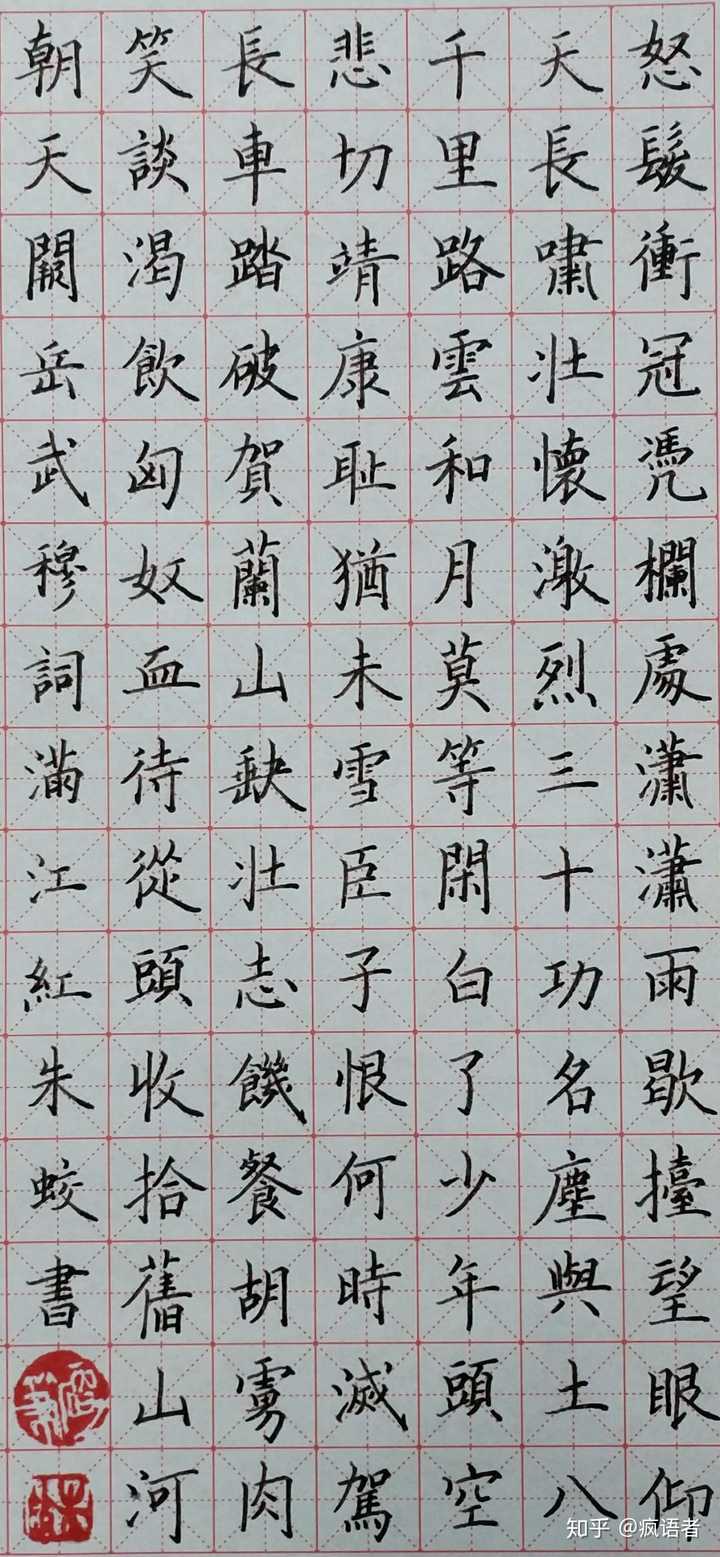 怒髮衝冠凴欄處瀟瀟雨歇擡望眼仰
天長嘯壯懷激烈三十功名塵與土八
千里路雲和月莫等閑白了少年頭空
悲切靖康耻猶未雪臣子恨何時滅駕
長車踏破賀蘭山缺壯志饑餐胡虜肉
笑談渴飲匈奴血待從頭收拾舊山河
朝天闕岳武穆詞滿江紅朱蛟書
知乎 @疯语者